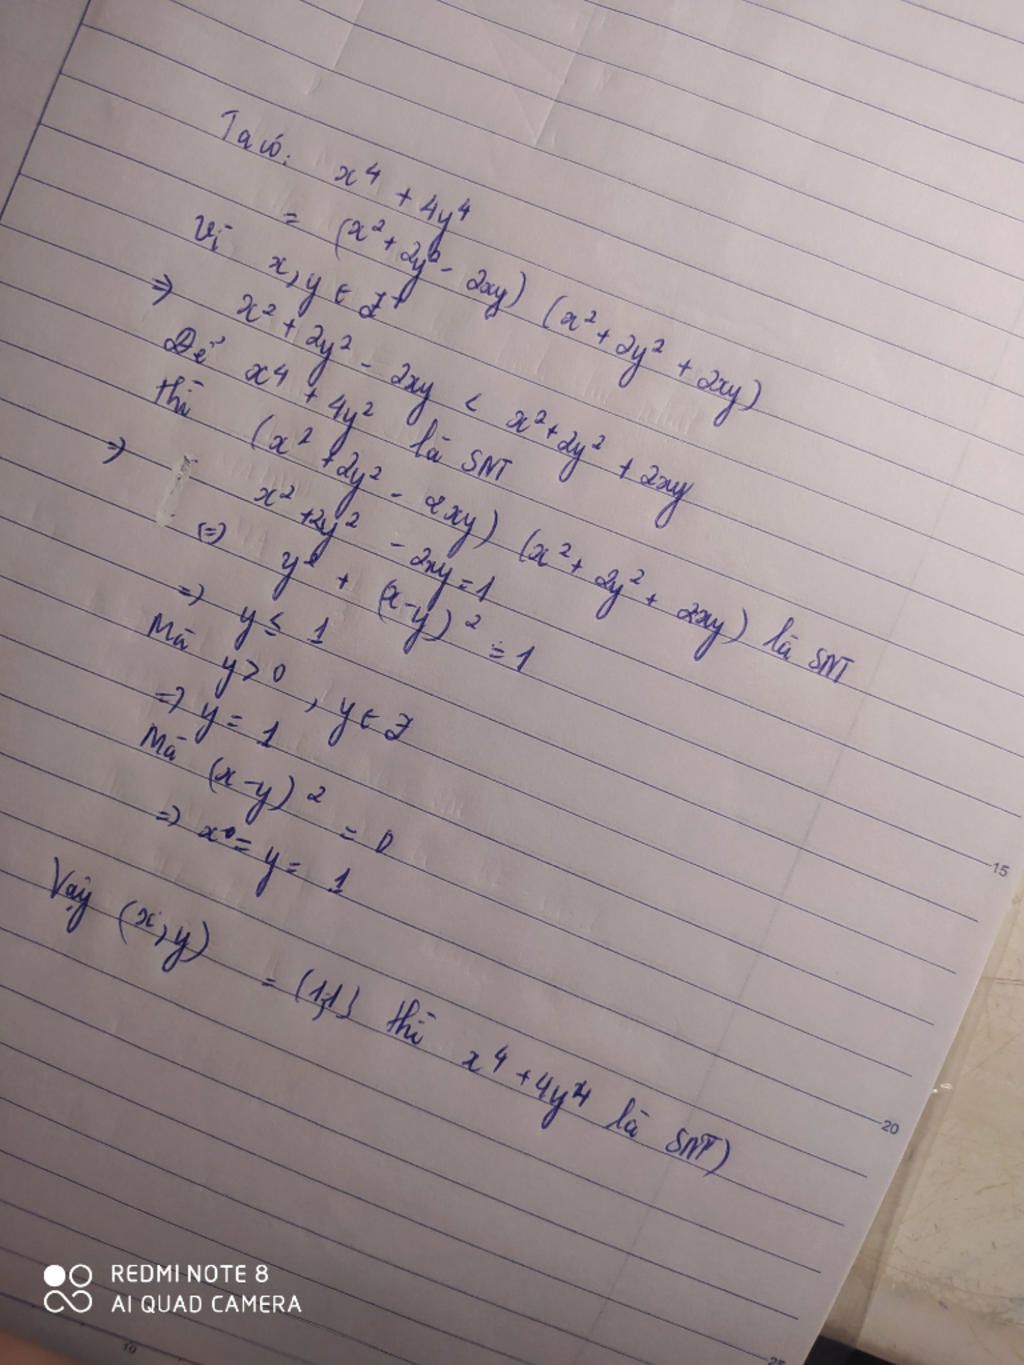 Ta có: x⁴ + 4y⁴
= (x² + 2y² - 2xy) (x² + 2y² + 2xy)
Vì x, y ∈ Z⁺
⇒ x² + 2y² - 2xy < x² + 2y² + 2xy
Để x⁴ + 4y² là SNT
thì (x² + 2y² - 2xy) (x² + 2y² + 2xy) là SNT
⇒ x² + 2y² - 2xy = 1
(=) y² + (x-y)² = 1
⇒ y ≤ 1
Mà y > 0, y ∈ Z
⇒ y = 1
Mà (x-y)² = 0
⇒ x = y = 1
Vậy (x, y) = (1,1) thì x⁴ + 4y⁴ là SNT)
15
20
25
10
REDMI NOTE 8
AI QUAD CAMERA